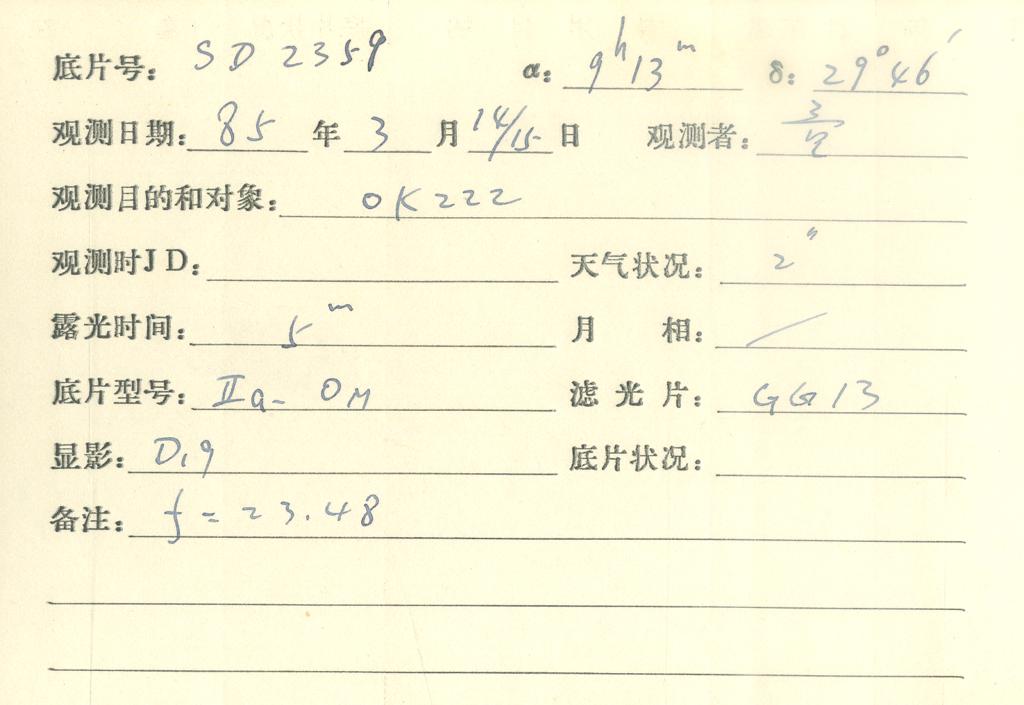 底片号: SD2359 α: 9h13m δ: 29°46′
观测日期: 85 年 3 月 14/15 日 观测者:
观测目的和对象: OK222
观测时JD: 天气状况: 2″
露光时间: 5m 月 相: /
底片型号: IIa-OM 滤光片: GG13
显影: D19 底片状况:
备注: f=23.48